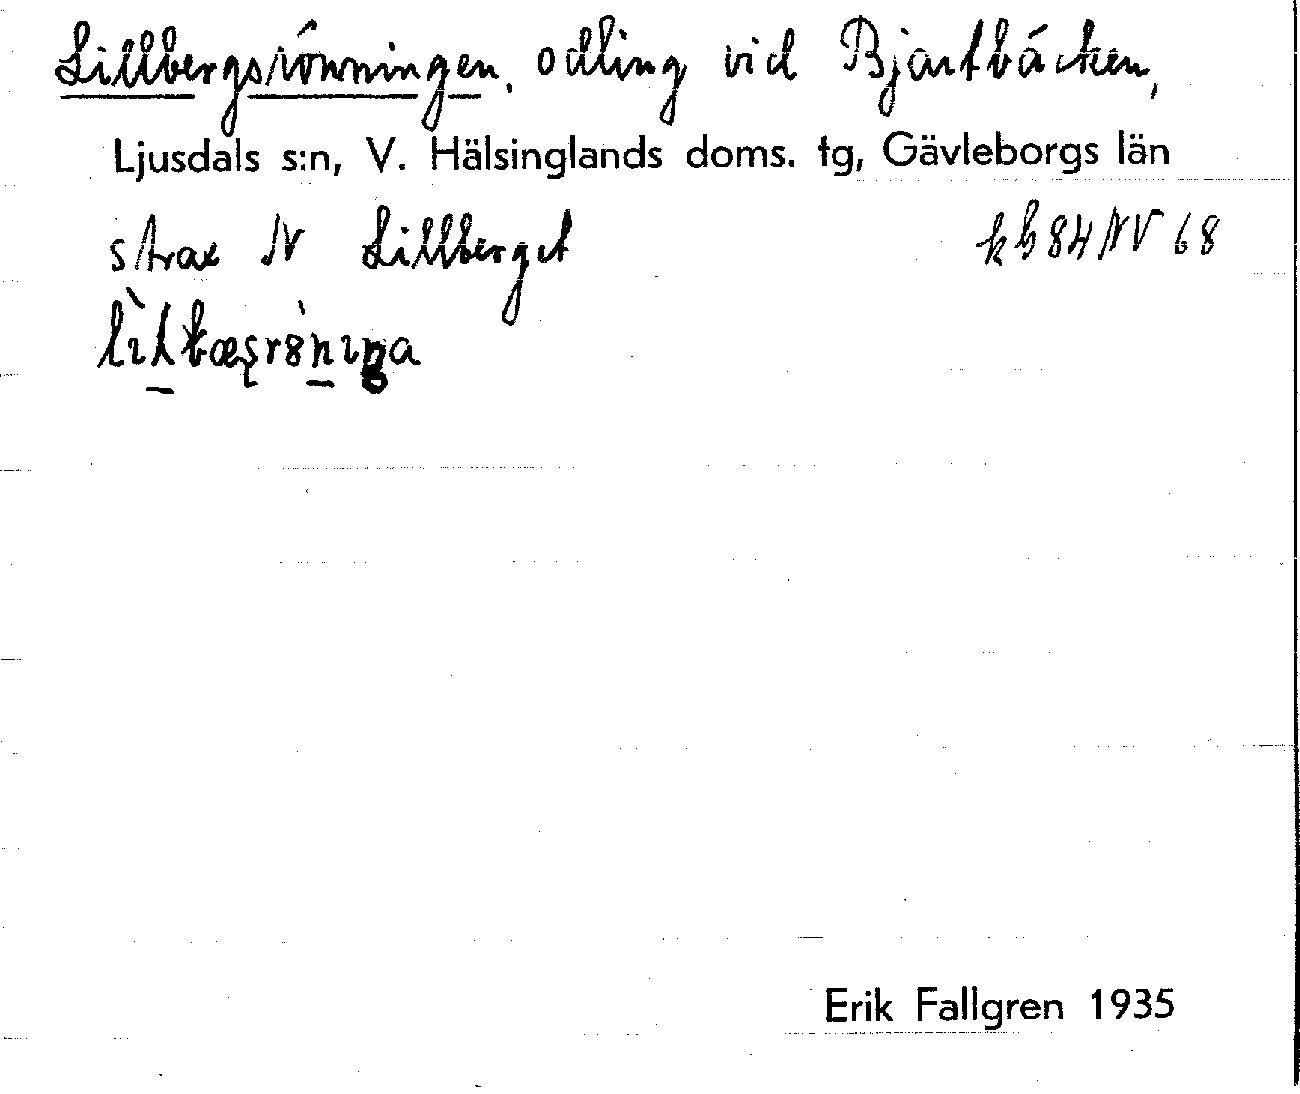 Lillbergsrönningen, odling vid Bjartbäcken,
Ljusdals s:n, V. Hälsinglands doms. tg, Gävleborgs län
strax N Lillberget kb 84 NV 68
Erik Fallgren 1935